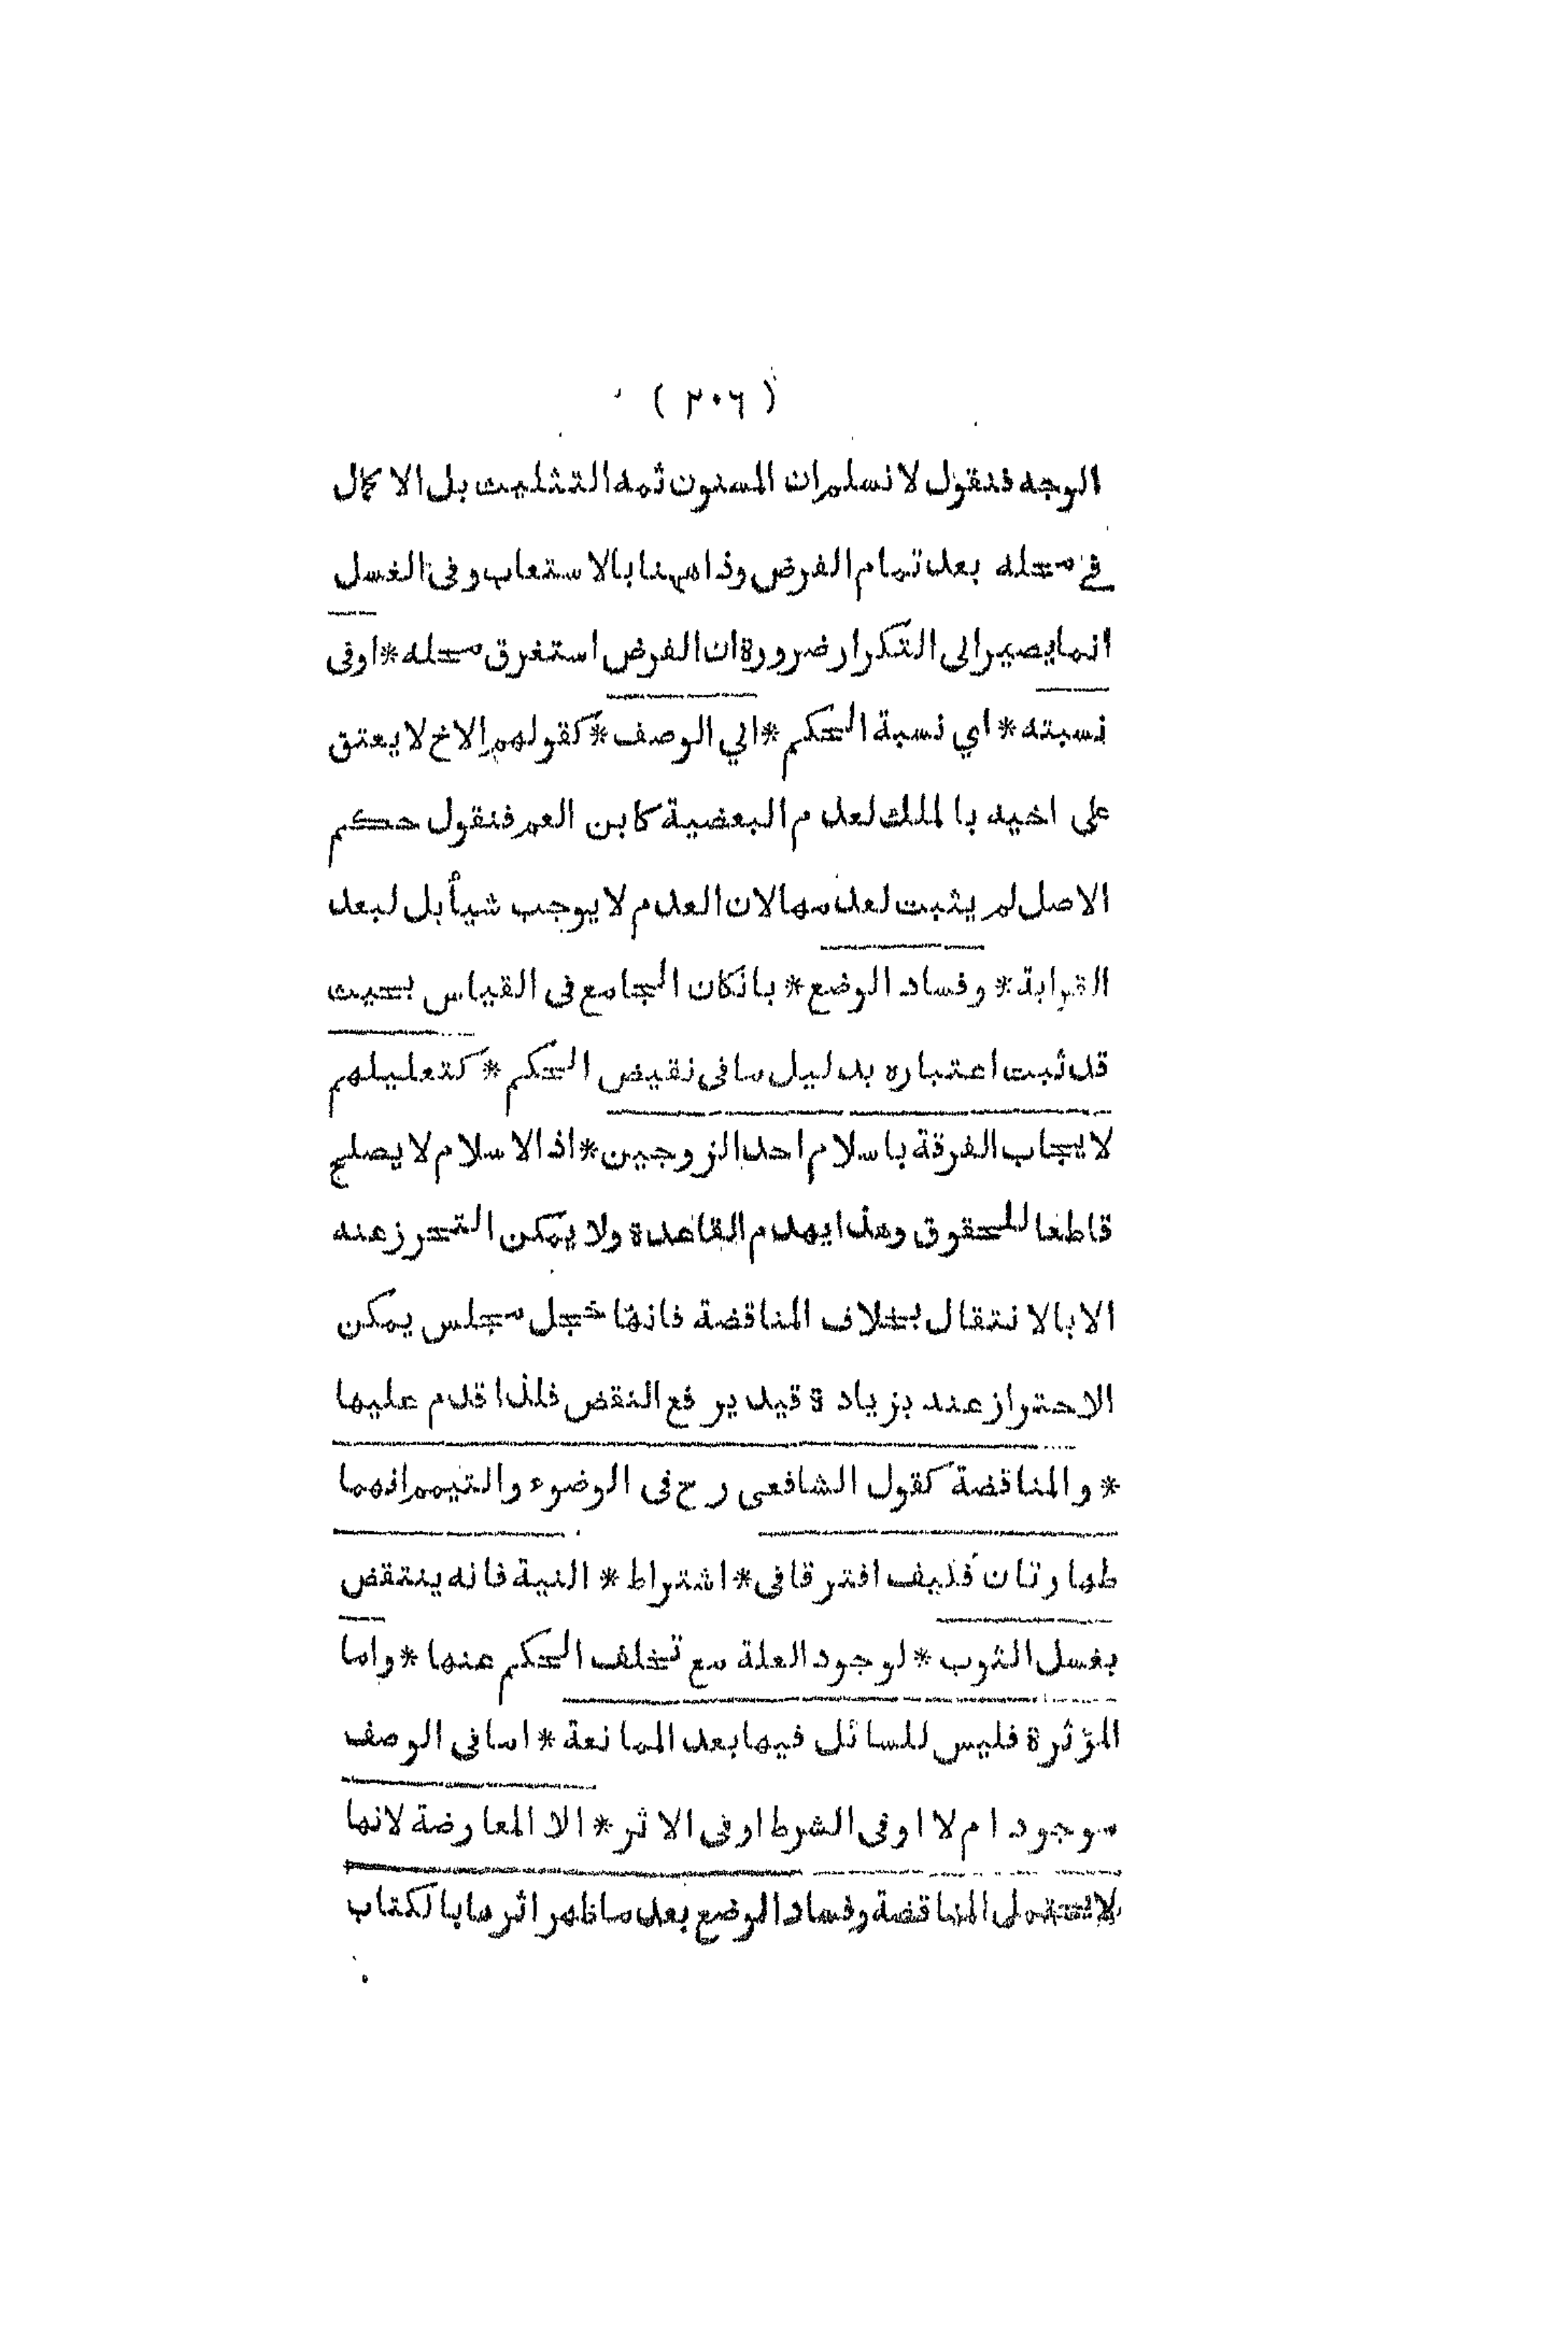 ( ٢٠٦ )
الوجه فنقول لا نسلم ان المسنون ثمه التثليث بل الاكمال
في محله بعد تمام الفرض وذا ههنا بالاستعاب وفى الغسل
انما يصير الى التكرار ضرورة ان الفرض استغرق محله * اوفى
نسبته * اي نسبة الحكم * الي الوصف * كقولهم الاخ لا يعتق
على اخيه با لملك لعدم البعضية كابن العم فنقول حكم
الاصل لم يثبت لعدمها لان العدم لا يوجب شيأ بل لبعد
القرابة * وفساد الوضع * بانكان الجامع فى القياس بحيث
قد ثبت اعتباره بدليل ما فى نقيض الحكم * كتعليلهم
لايجاب الفرقة باسلام احد الزوجين * اذ الاسلام لا يصلح
قاطعا للحقوق وهذا يهدم القاعدة ولا يمكن التحرز عنه
الا بالانتقال بخلاف المناقضة فانها خجل مجلس يمكن
الاحتراز عنه بزيادة قيد يرفع النقض فلذا قدم عليها
* والمناقضة كقول الشافعى رح فى الوضوء والتيمم انهما
طهارتان فكيف افترقا فى * اشتراط * النية فانه ينتقض
بغسل الثوب * لوجود العلة مع تخلف الحكم عنها * واما
المؤثرة فليس للسائل فيها بعد الممانعة * اما فى الوصف
موجود ام لا اوفى الشرط اوفى الاثر * الا المعارضة لانها
لا يحتمل المناقضة وفساد الوضع بعد ما ظهر اثرها بالكتاب